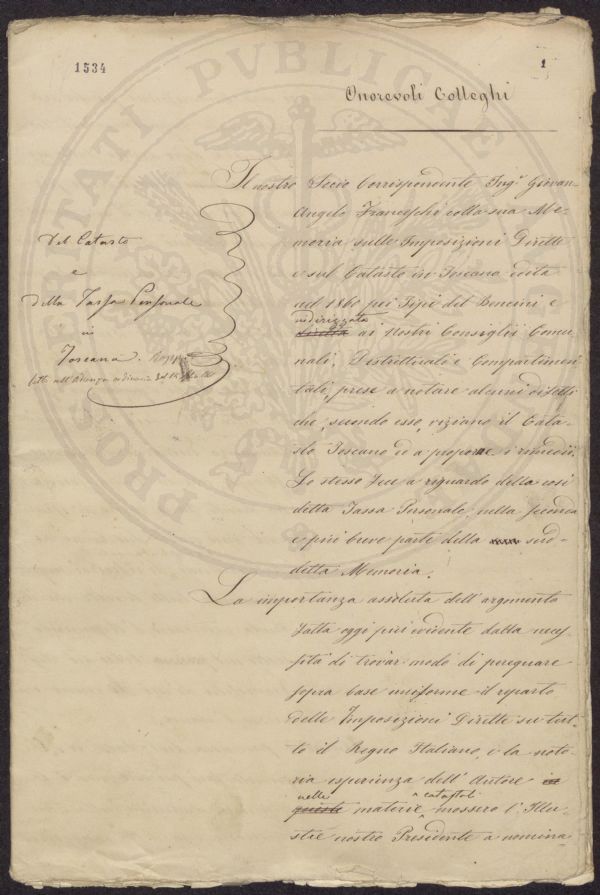 1534
1
Onorevoli Colleghi
Del Catasto
e
della Tassa Personale
in
Toscana. Rapp.
Il nostro Socio Corrispondente Ing.e Giovan-
Angelo Franceschi colla sua Me-
moria sulle Imposizioni Dirette
e sul Catasto in Toscana edita
nel 1860 pei Tipi del Bencini e
indirizzata
ai Nostri Consigli Comu-
nali, Distrettuali e Compartimen
tali, prese a notare alcuni difetti
che, secondo esso, viziano il Cata-
sto Toscano ed a proporne i rimedii.
Lo stesso fece a riguardo della così
detta Tassa Personale, nella seconda
e più breve parte della sud-
detta Memoria.
La importanza assoluta dell'argomento
fatta oggi più evidente dalla neces-
sità di trovar modo di perequare
sopra base uniforme il reparto
delle Imposizioni Dirette su tut-
to il Regno Italiano, e la noto-
ria esperienza dell'Autore in
nelle catastali
queste materie mossero l'Illu-
stre nostro Presidente a nomina-
PROSPERITATI PVBLICAE